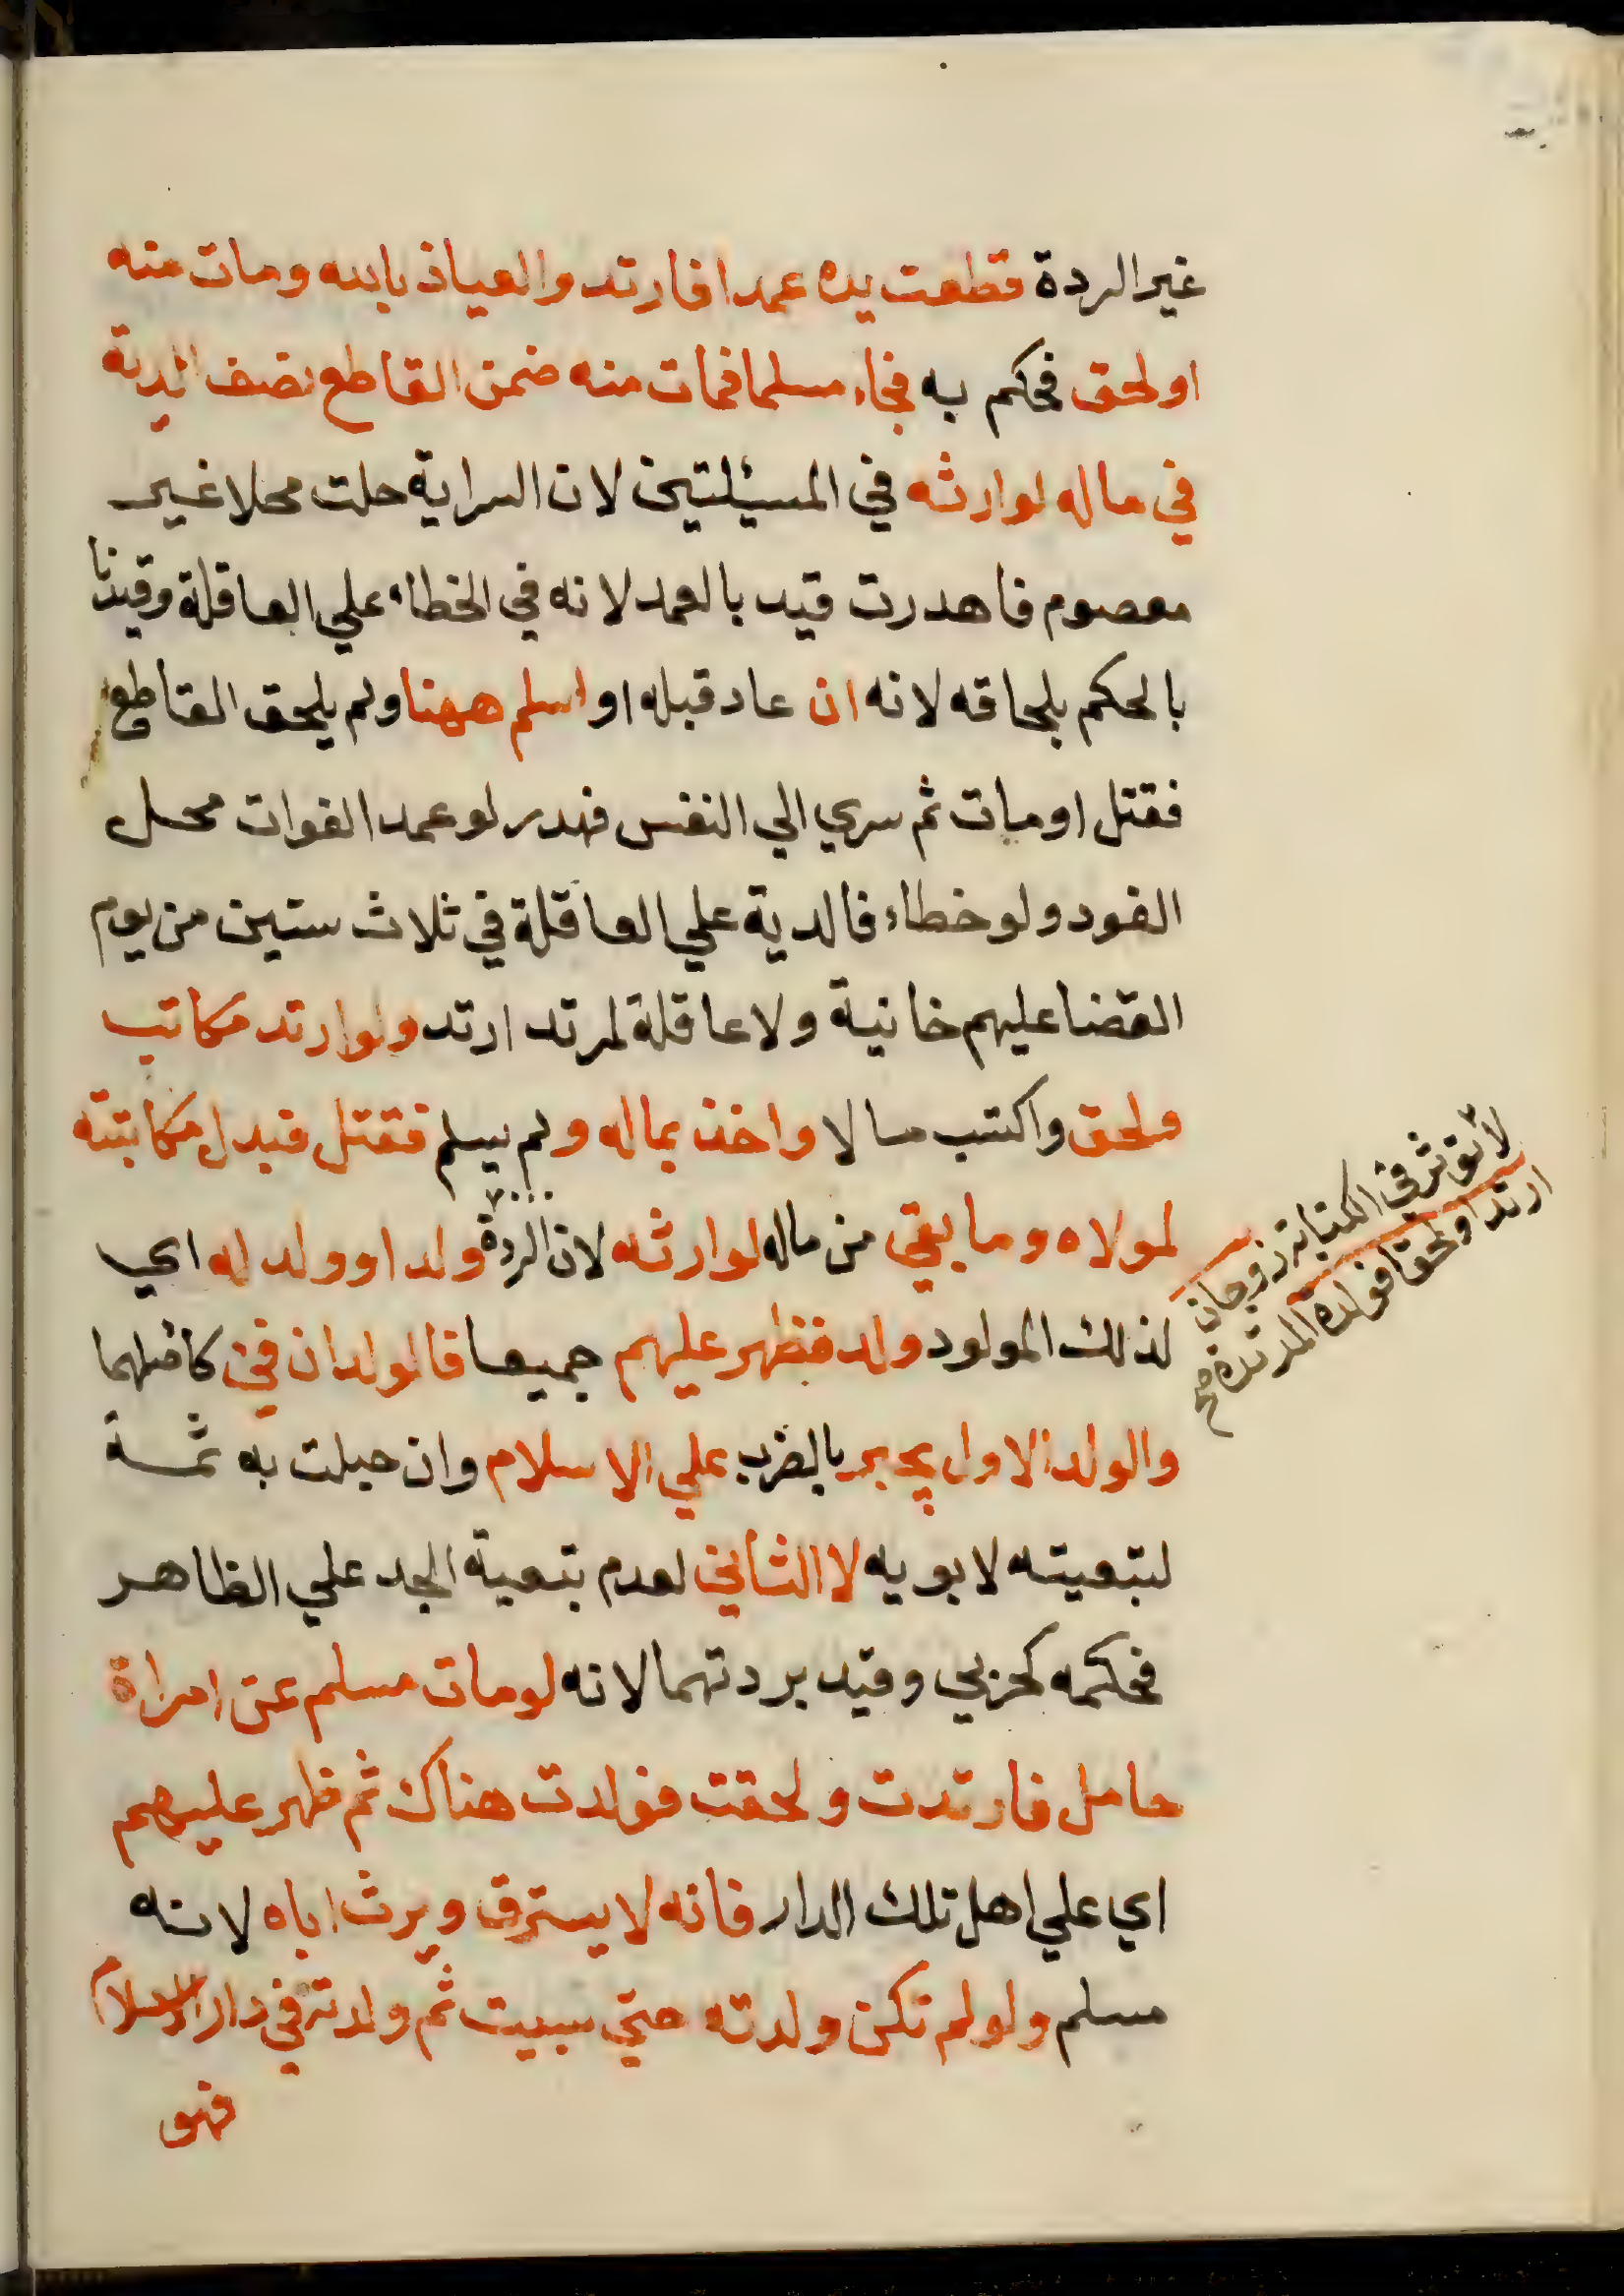 غير الردة قطعت يده عمدا فارتد والعياذ بالله ومات منه
او لحق فحكم به فجاء مسلما فمات منه ضمن القاطع نصف الدية
في ماله لوارثه في المسيئلتين لان السراية حلت محلا غير
معصوم فاهدرت قيد بالعمد لانه في الخطاء علي العاقلة وقيدنا
بالحكم بلحاقه لانه ان عاد قبله او اسلم ههنا ولم يلحق القاطع
فقتل او مات ثم سري الي النفس فهدر لو عمد الفوات محل
القود ولو خطاء فالدية علي العاقلة في ثلاث سنين من يوم
القضا عليهم خانية ولا عاقلة لمرتد ارتد ولو ارتد مكاتب
ولحق واكتسب مالا واخذ بماله ولم يسلم فقتل فبدل مكاتبته
لمولاه وما بقي من ماله لوارثه لان الردة ولدا وولد له اي
لذلك المولود ولد فظهر عليهم جميعا فالولدان في كاصلهما
والولد الاول يجبر بالضرب علي الاسلام وان حبلت به ثمة
لتبعيته لابويه لا الثاني لعدم تبعية الجد علي الظاهر
فحكمه كحربي وقيد بردتهما لانه لو مات مسلم عن امراة
حامل فارتدت ولحقت فولدت هناك ثم ظهر عليهم
اي علي اهل تلك الدار فانه لا يسترق ويرث اباه لانه
مسلم ولو لم تكن ولدته حتي سبيت ثم ولدته في دار الاسلام
فهو
لا تؤثر في الكتابة زوجان
ارتدا ولحقا فولدة المرتدة صح